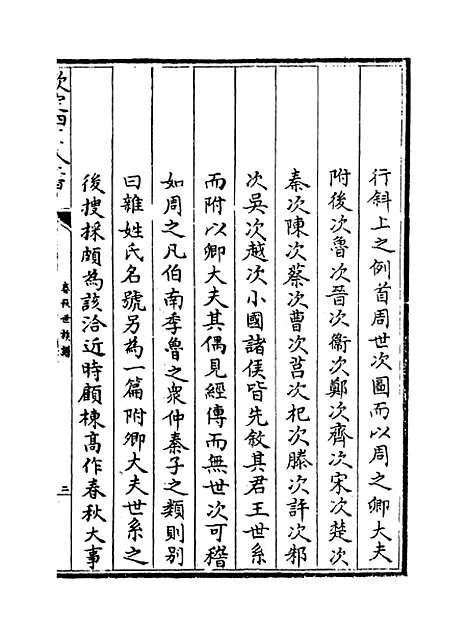 行斜上之例首周世次圖而以周之卿大夫
附後次魯次晉次衞次鄭次齊次宋次楚次
秦次陳次蔡次曹次莒次杞次滕次許次邾
次吳次越次小國諸侯皆先敘其君王世系
而附以卿大夫其偶見經傳而無世次可稽
如周之凡伯南季魯之衆仲秦子之類則別
曰雜姓氏名號另為一篇附卿大夫世系之
後搜採頗為該洽近時顧棟高作春秋大事
春秋世族譜
三